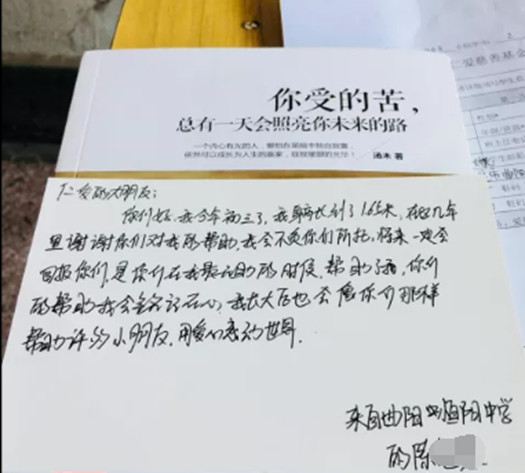 你受的苦，
总有一天会照亮你未来的路
一个内心有光的人，哪怕在黑暗中独自寂寞，
依然可以成长为人生的赢家，绽放璀璨的光华！
汤木 著
仁爱慈善基金
仁爱的大朋友：
你们好，我今年初三了，我身高长到了165米，在这几年
里谢谢你们对我的帮助，我会不负你们所托，将来一定会
回报你们，是你们在我最无助的时候，帮助了我，你们
的帮助我会铭记在心，我长大后也会像你们那样
帮助许多小朋友，用爱心感动世界.
来自曲阳县恒阳中学
的陈